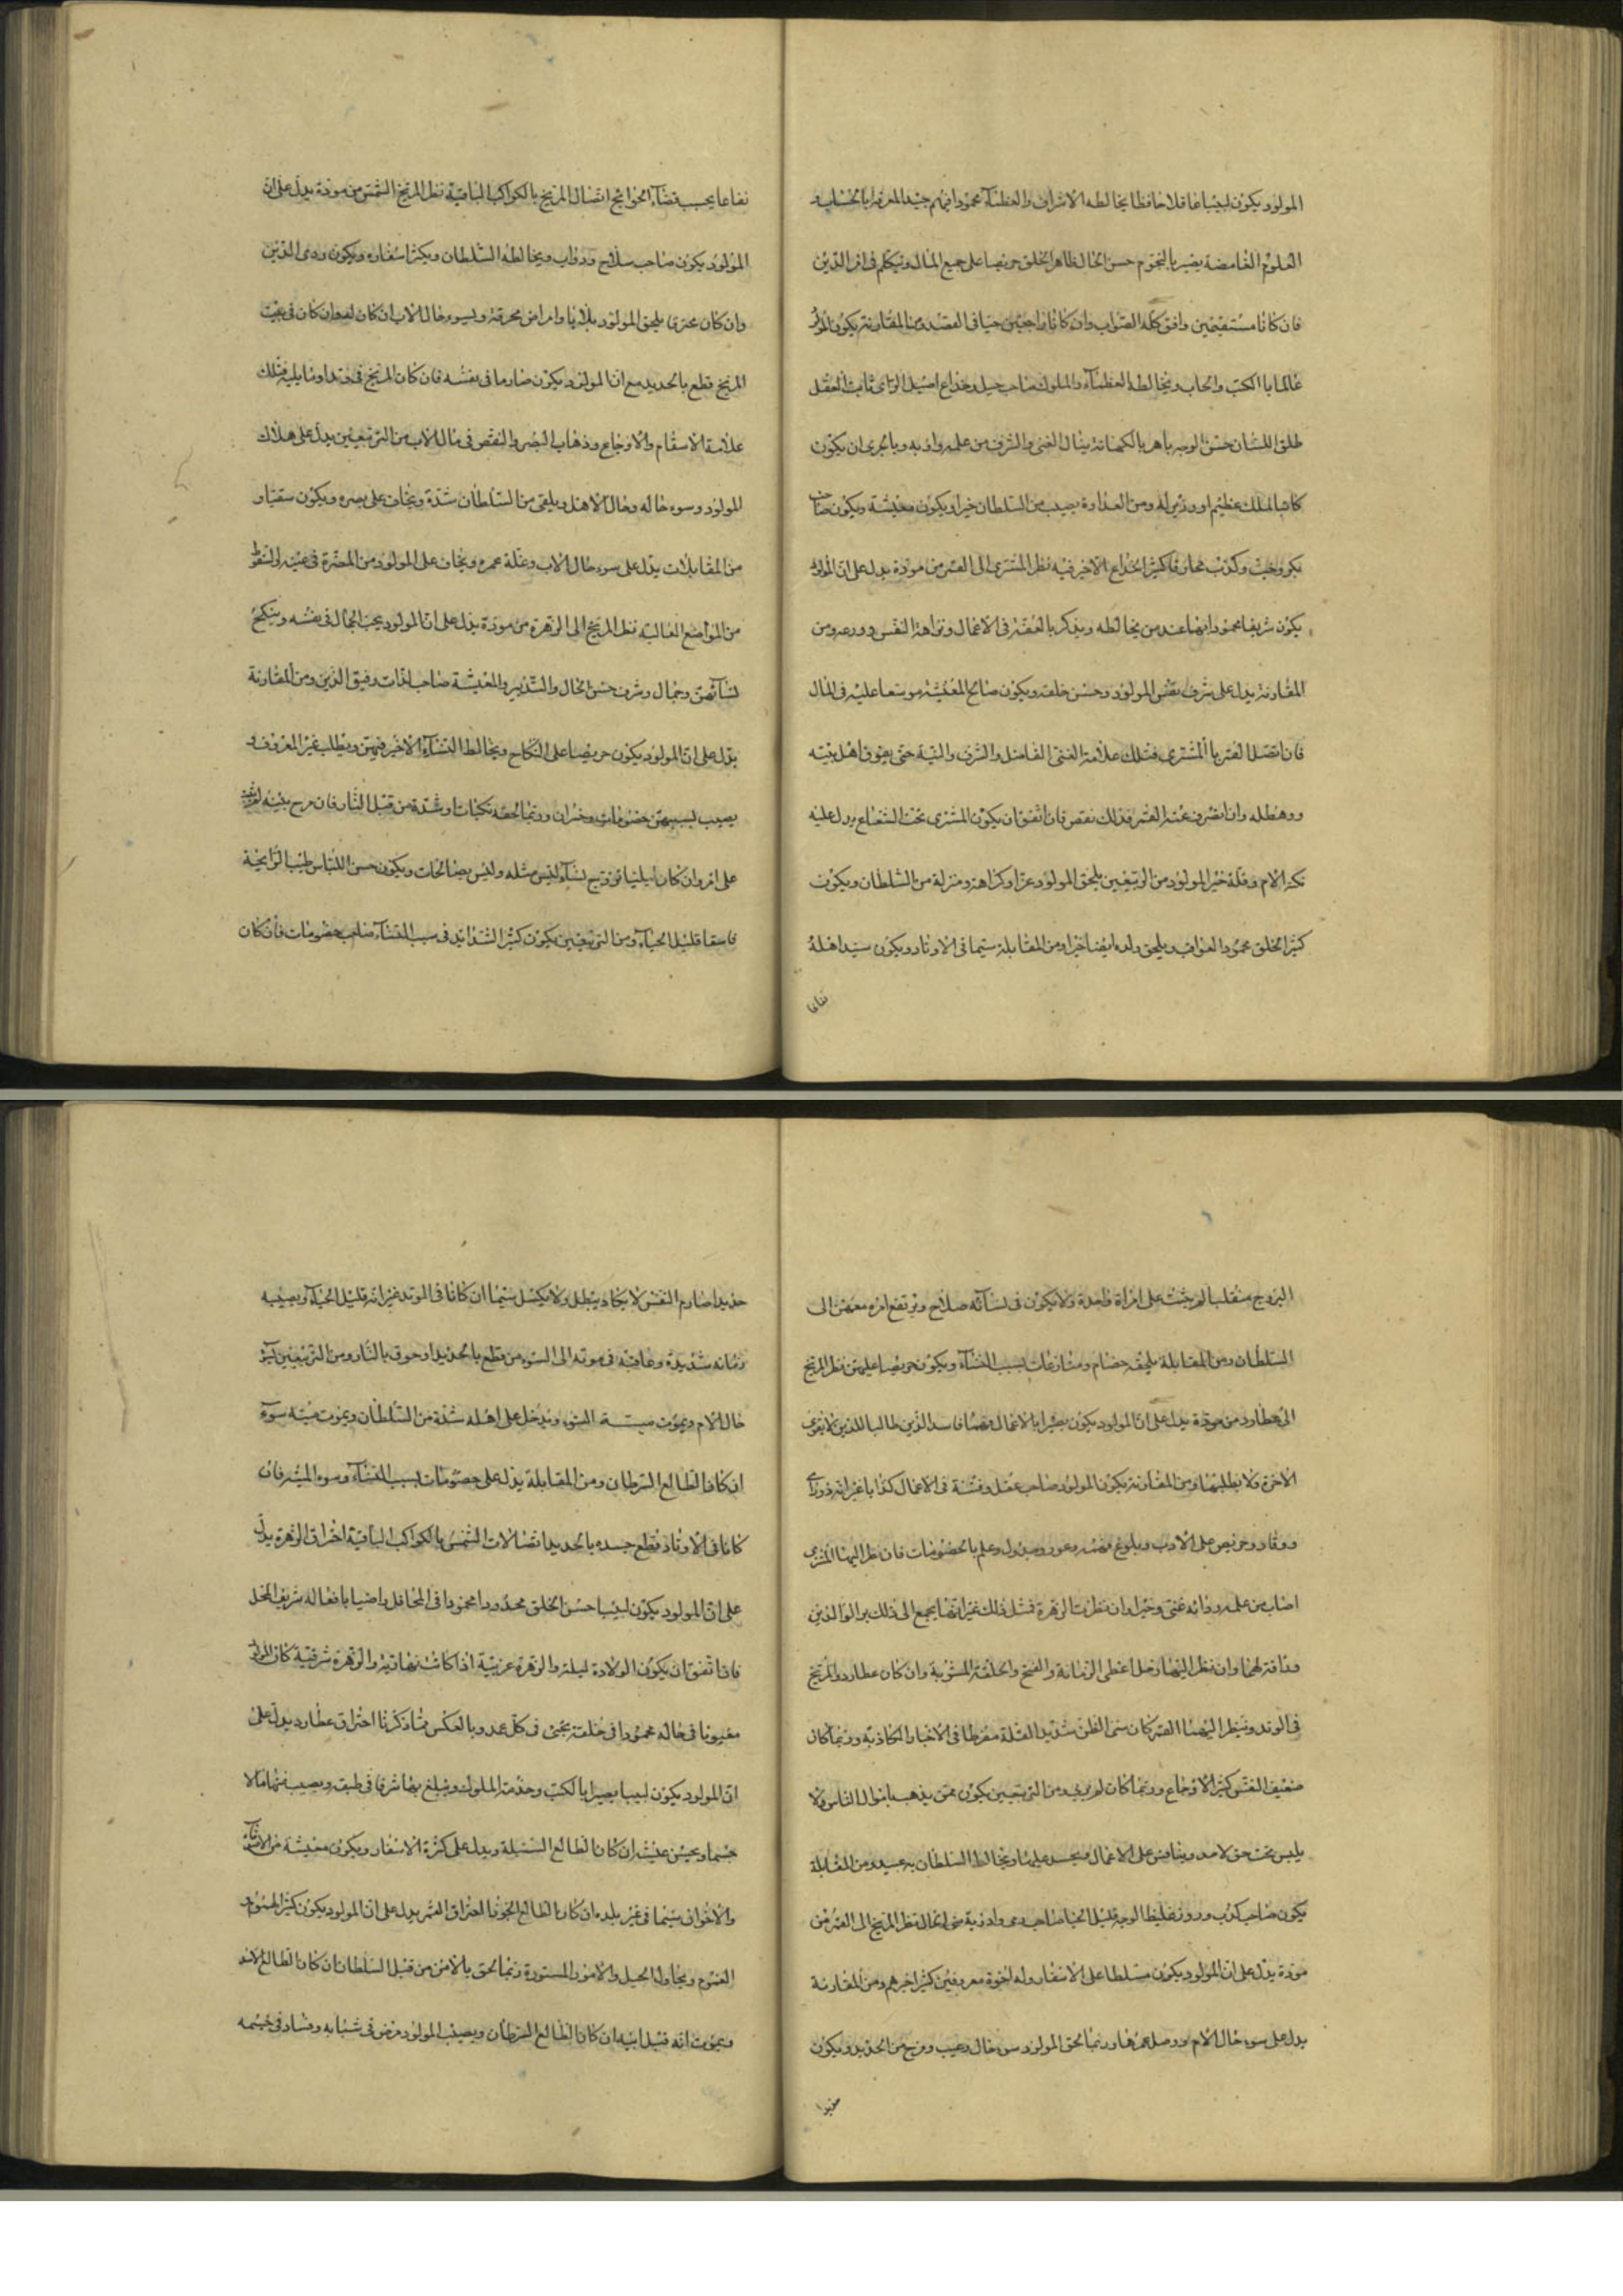 المولود يكون لبيبا عاقلا حافظا يخالطه الاشراف والعظمآء محمودا فيهم جيد المعرفة بالحساب و
العلوم الغامضة بصير بالنجوم حسن الحال ظاهر الخلق حريصا على جميع المال ويتكلم في امر الدين
فان كانا مستقيمين وافق كله الصواب وان كانا راجعين حيا في القصد ومن المقارنة يكون المولود
عالما باالكتب والحساب ويخالط العظمآء والملوك صاحب حيل وخداع اصيل الراى ثابت العقل
طلق اللسان حسن الوجه باهر بالكهانة ينال الغنى والشرف من علمه وادبه وبالحرى ان يكون
كاتبا لملك عظيم او وزير له ومن العداوة يصيب من السلطان خيرا ويكون معيشة ويكون صاحب
بكر وخبث وكذب محارفا كثير الخداع لاخير فيه نظر المشترى الى القمر من مودة يدل على ان المولود
يكون شريفا محمودا بهيا عند من يخالطه ويذكر بالعفة في الاعمال ونزاهة النفس وورعه ومن
المقارنة يدل على شرف نفس المولود وحسن خلقه ويكون صالح المعيشة موسعا عليه في المال
فان اتصل القمر باالمشترى فتلك علامة الغنى الفاضل والشرف والنية حتى يفوق اهل بيته
ورهطه وان انصرف عنه القمر فذلك نقص فان اتفق ان يكون المشترى تحت الشعاع يدل عليه
نكد الام وقلة خير المولود من الربيعين يلحق المولود عزا وكراهة ومنزلة من السلطان ويكون
كثير الخلق محمود العواقب ويلحق ولده ايضا خيرا ومن المقابلة سيما في الاوتاد ويكون سيد اهله
نفاعا
نفاعا يحبب قضآء الحوائج اتصال المريخ بالكواكب الباقية نظر المريخ الشمس من مودة يدل على ان
المولود يكون صاحب سلاح ودواب ويخالطه السلطان ويكثر اسفاره ويكون ردى الدين
وان كان محترقا يلحق المولود بلايا وامراض محرقة ويسوء حال الاب ان كان وان كان في بيت
المريخ قطع بالحديد مع ان المولود يكون صارما في نفسه فان كان المريخ في وتد او ما يليه فتلك
علامة الاسقام والاوجاع وذهاب البصر والنقص في مال الاب من التربيعين يدل على هلاك
المولود وسوء حاله وحال الاهل ويلقى من السلطان شدة ويخاف على بصره ويكون سقيما و
من المقابلات يدل على سوء حال الاب وعلة عمره ويخاف على المولود من المضرة في عينه والسقوط
من المواضع العالية نظر المريخ الى الزهرة من مودة يدل على ان المولود يحب الجمال في نفسه وينكح
لنسآئهن وجمال وشرف حسن الحال والتدبير والمعيشة صاحب لذات رفيق الدين ومن المقارنة
يدل على ان المولود يكون حريصا على النكاح ويخالط النسآء لاخير فيهن ويطلب غير المعروف و
يصيب بسببهن خصومات وخسران وربما لحقه نكبات وشدة من قبل النار فان
على امر وان كان ليليا تزوج نسآء ليس مثله وليس بصالحات ويكون حسن اللباس طيب الرايحة
فاسقا قليل الحيآء ومن التربيعين يكون كثير الشدايد في سبب النسآء صاحب خصومات فان كان
البروج منقلبا لم يثبت على امراة واحدة ولايكون في نسآئه صلاح ويرتفع امره معهن الى
السلطان ومن المقابلة يلحقه خصام ومنازعات بسبب النسآء ويكون حريصا عليهن نظر المريخ
الى عطارد من مودة يدل على ان المولود يكون بصيرا بالاعمال فاسد الدين طالبا للدنيا لا يعرف
الاخرة ولا يطلبها ومن المقارنة يكون المولود صاحب عقل وفتنة في الاعمال كذابا غير انه ذو راى
ووقار وحريص على الادب وبلوغ وعلم بالخصومات فان نظر اليهما المشترى
اصاب من علمه ودائه غنى وخيرا وان نظرت الزهرة فمثل ذلك غير انهما يجمع الى ذلك بر الوالدين
ورأفة لهما وان نظر اليهما زحل اعطى الزمانة والقبح والخلقة المشوبة وان كان عطارد والمريخ
في الوتد وينظر اليهما القمر كان سئ الظن شديد القلة مفرطا في الاخبار الكاذبة وربما كان
ضعيف النفس كثير الاوجاع وربما كان ومن التربيعين يكون ممن يذهب باموال الناس ولا
يلبس تحت حق لاحد وينافس على الاعمال ويحسد عليها ويخالط السلطان ومن المقابلة
يكون صاحب كذب وزور غليظ الوجه قليل الحيا صاحب نظر المريخ الى القمر من
مودة يدل على ان المولود يكون متسلطا على الاسفار وله اخوة معروفين كثير اخرهم ومن المقارنة
يدل على سوء حال الام وربما لحق المولود سوء حال وعيب من الحديد ويكون
خبيرا
حديدا صارم النفس لايكاد يبطل ولايكسل سيما ان كانا في الوتد غير انه قليل الحيآء ويصيبه
زمانه شديدة وعاقبة في موته الى السوء من قطع بالحديد او حرق بالنار ومن التربيعين
حال الام ويموت ميتة السوء ويدخل على اهله شدة من السلطان ويموت ميتة سوء
ان كان الطالع السرطان ومن المقابلة يدل على خصومات بسبب النسآء وسوء السيرة فان
كانا في الاوتاد قطع جسده بالحديد اتصالات الشمس بالكواكب الباقية احتراق الزهرة يدل
على ان المولود يكون لبيبا حسن الخلق محدودا محمودا في المحافل راضيا بافعاله شريف المحل
فاذا اتفق ان يكون الولادة ليلية والزهرة غربية اذا كانت نهارية والزهرة شرقية كان المولود
معيوبا في حاله محمودا في خلقته يحبى في كل عمد وبالعكس مما ذكرنا احتراق عطارد يدل على
ان المولود يكون لبيبا بصيرا بالكتب وخدمة الملوك ويبلغ بها شرفا في طبقه ويصيب منها مالا
جسيما ويحسن عيشه ان كان الطالع السنبلة ويدل على كثرة الاسفار ويكون معيشة من
والاخوان سيما في غير بلده ان كان الطالع الجوزا احتراق القمر يدل على ان المولود يكون كثير الهموم و
الغموم ويحاول الحيل والامور المستورة وربما لحق بالامن من قبل السلطان ان كان الطالع الاسد
ويموت انه قبل ابيه ان كان الطالع السرطان ويصيب المولود مرض في شبابه وفساد في جسمه